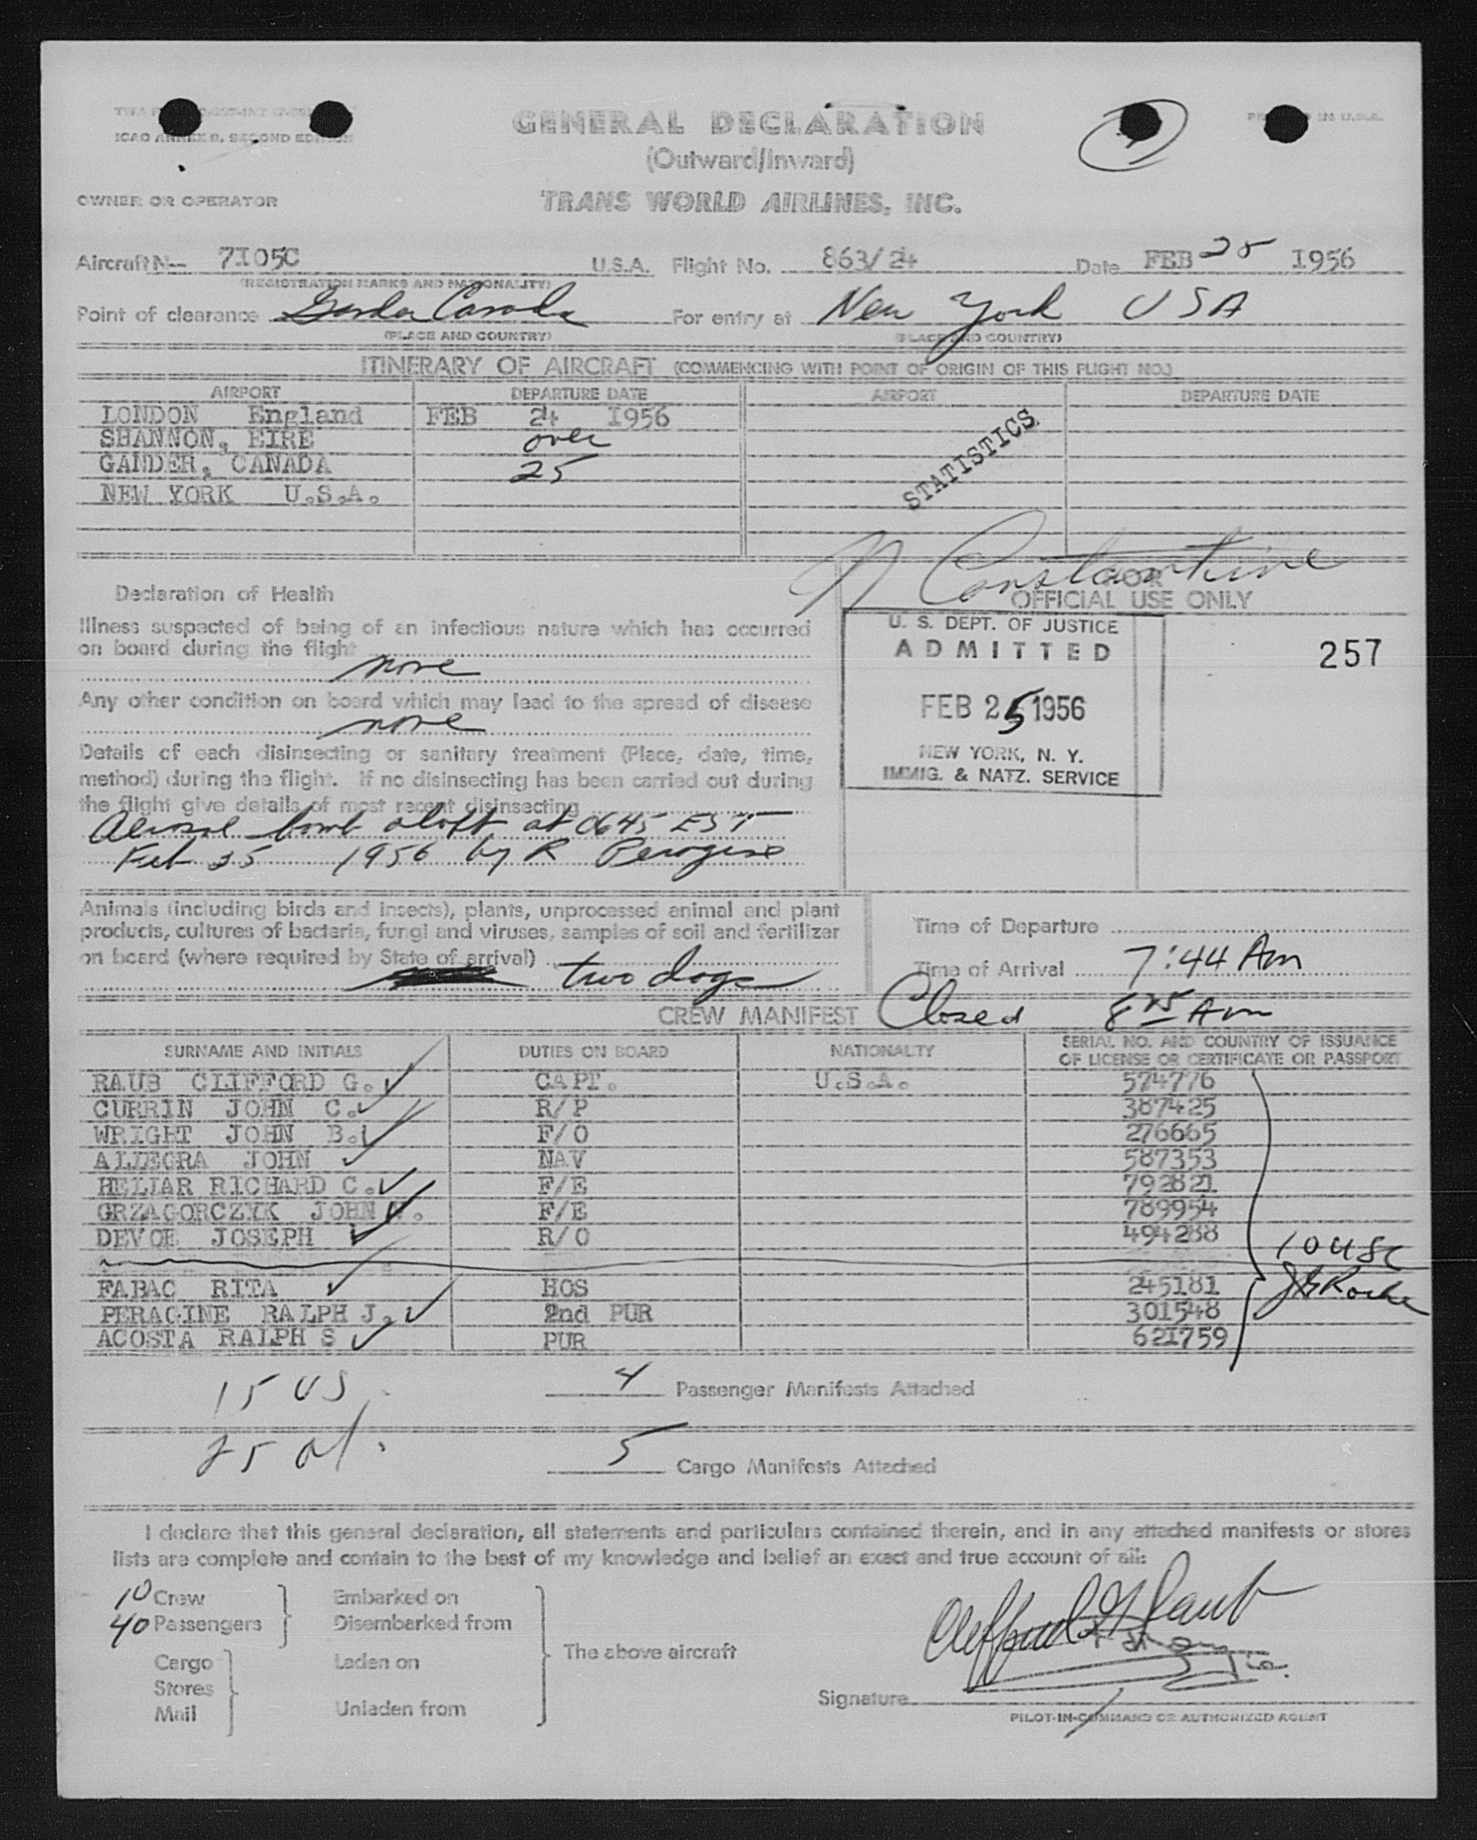 ICAO ANNEX 9, SECOND EDITION
GENERAL DECLARATION
(Outward/Inward)
OWNER OR OPERATOR TRANS WORLD AIRLINES, INC.
Aircraft N- 7105C U.S.A. Flight No. 863/24 Date FEB 25 1956
(REGISTRATION MARKS AND NATIONALITY)
Point of clearance Gander Canada For entry at New York USA
(PLACE AND COUNTRY) (PLACE AND COUNTRY)
ITINERARY OF AIRCRAFT (COMMENCING WITH POINT OF ORIGIN OF THIS FLIGHT NO.)
AIRPORT DEPARTURE DATE AIRPORT DEPARTURE DATE
LONDON England FEB 24 1956
SHANNON, EIRE over
GANDER, CANADA 25
NEW YORK U.S.A.
STATISTICS
N Constantine
Declaration of Health
FOR
OFFICIAL USE ONLY
Illness suspected of being of an infectious nature which has occurred
on board during the flight
none
Any other condition on board which may lead to the spread of disease
none
Details of each disinsecting or sanitary treatment (Place, date, time,
method) during the flight. If no disinsecting has been carried out during
the flight give details of most recent disinsecting
Aerosol bomb aloft at 0645 EST
Feb 25 1956 by R Peragine
U. S. DEPT. OF JUSTICE
ADMITTED
FEB 25 1956
NEW YORK, N. Y.
IMMIG. & NATZ. SERVICE
257
Animals (including birds and insects), plants, unprocessed animal and plant
products, cultures of bacteria, fungi and viruses, samples of soil and fertilizer
on board (where required by State of arrival)
two dogs
Time of Departure
Time of Arrival 7:44 Am
Closed 8 25 Am
CREW MANIFEST
SURNAME AND INITIALS DUTIES ON BOARD NATIONALTY SERIAL NO. AND COUNTRY OF ISSUANCE
OF LICENSE OR CERTIFICATE OR PASSPORT
RAUB CLIFFORD G. CAPT. U.S.A. 574776
CURRIN JOHN C. R/P 387425
WRIGHT JOHN B. F/O 276665
ALLEGRA JOHN NAV 587353
HELIAR RICHARD C. F/E 792821
GRZAGORCZYK JOHN W. F/E 789954
DEVOE JOSEPH R/O 494288
10 USC
FABAC RITA HOS 245181
J G Roche
PERAGINE RALPH J. 2nd PUR 301548
ACOSTA RALPH S PUR 621759
15 US
4 Passenger Manifests Attached
25 al.
5 Cargo Manifests Attached
I declare that this general declaration, all statements and particulars contained therein, and in any attached manifests or stores
lists are complete and contain to the best of my knowledge and belief an exact and true account of all:
10 Crew Embarked on
40 Passengers Disembarked from
The above aircraft
Cargo Laden on
Stores
Mail Unladen from
Clifford G Raub
Signature
PILOT-IN-COMMAND OR AUTHORIZED AGENT